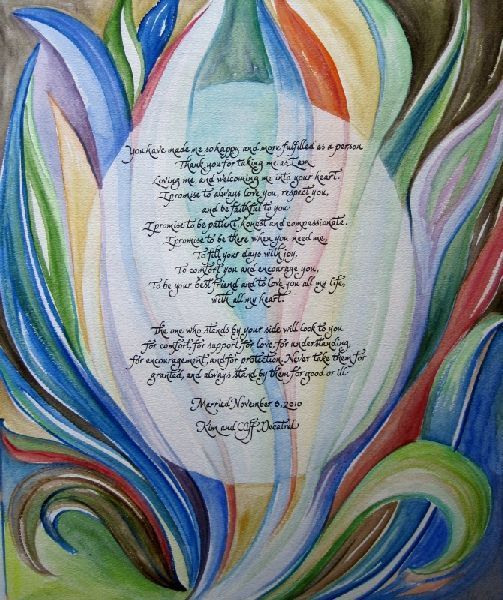 You have made me so happy, and more fulfilled as a person.
Thank you for taking me as I am
Loving me and welcoming me into your heart.
I promise to always love you, respect you,
and be faithful to you
I promise to be patient, honest and compassionate.
I promise to be there when you need me,
To fill your days with joy,
To comfort you and encourage you,
To be your best friend and to love you all my life,
with all my heart.
The one who stands by your side will look to you
for comfort, for support, for love, for understanding,
for encouragement, and for protection. Never take them for
granted, and always stand by them for good or ill.
Married November 6, 2010
Kim and